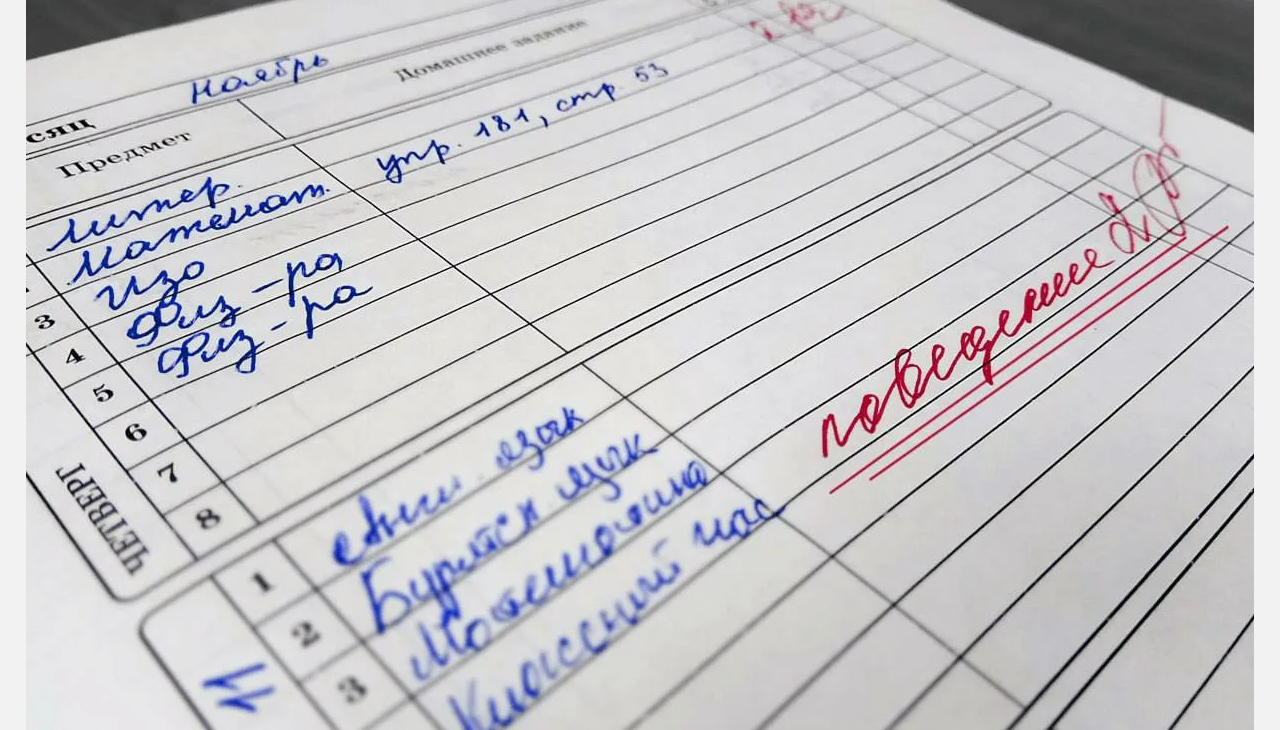 сяц Ноябрь
Предмет Домашнее задание
Литер.
Математ. упр. 181, стр. 53
3 Изо
4 Физ-ра
5 Физ-ра
6
7
8
ЧЕТВЕРГ
поведение 2
1 Англ. язык
2 Бурятск. язык
3 Математика
Классный час
11